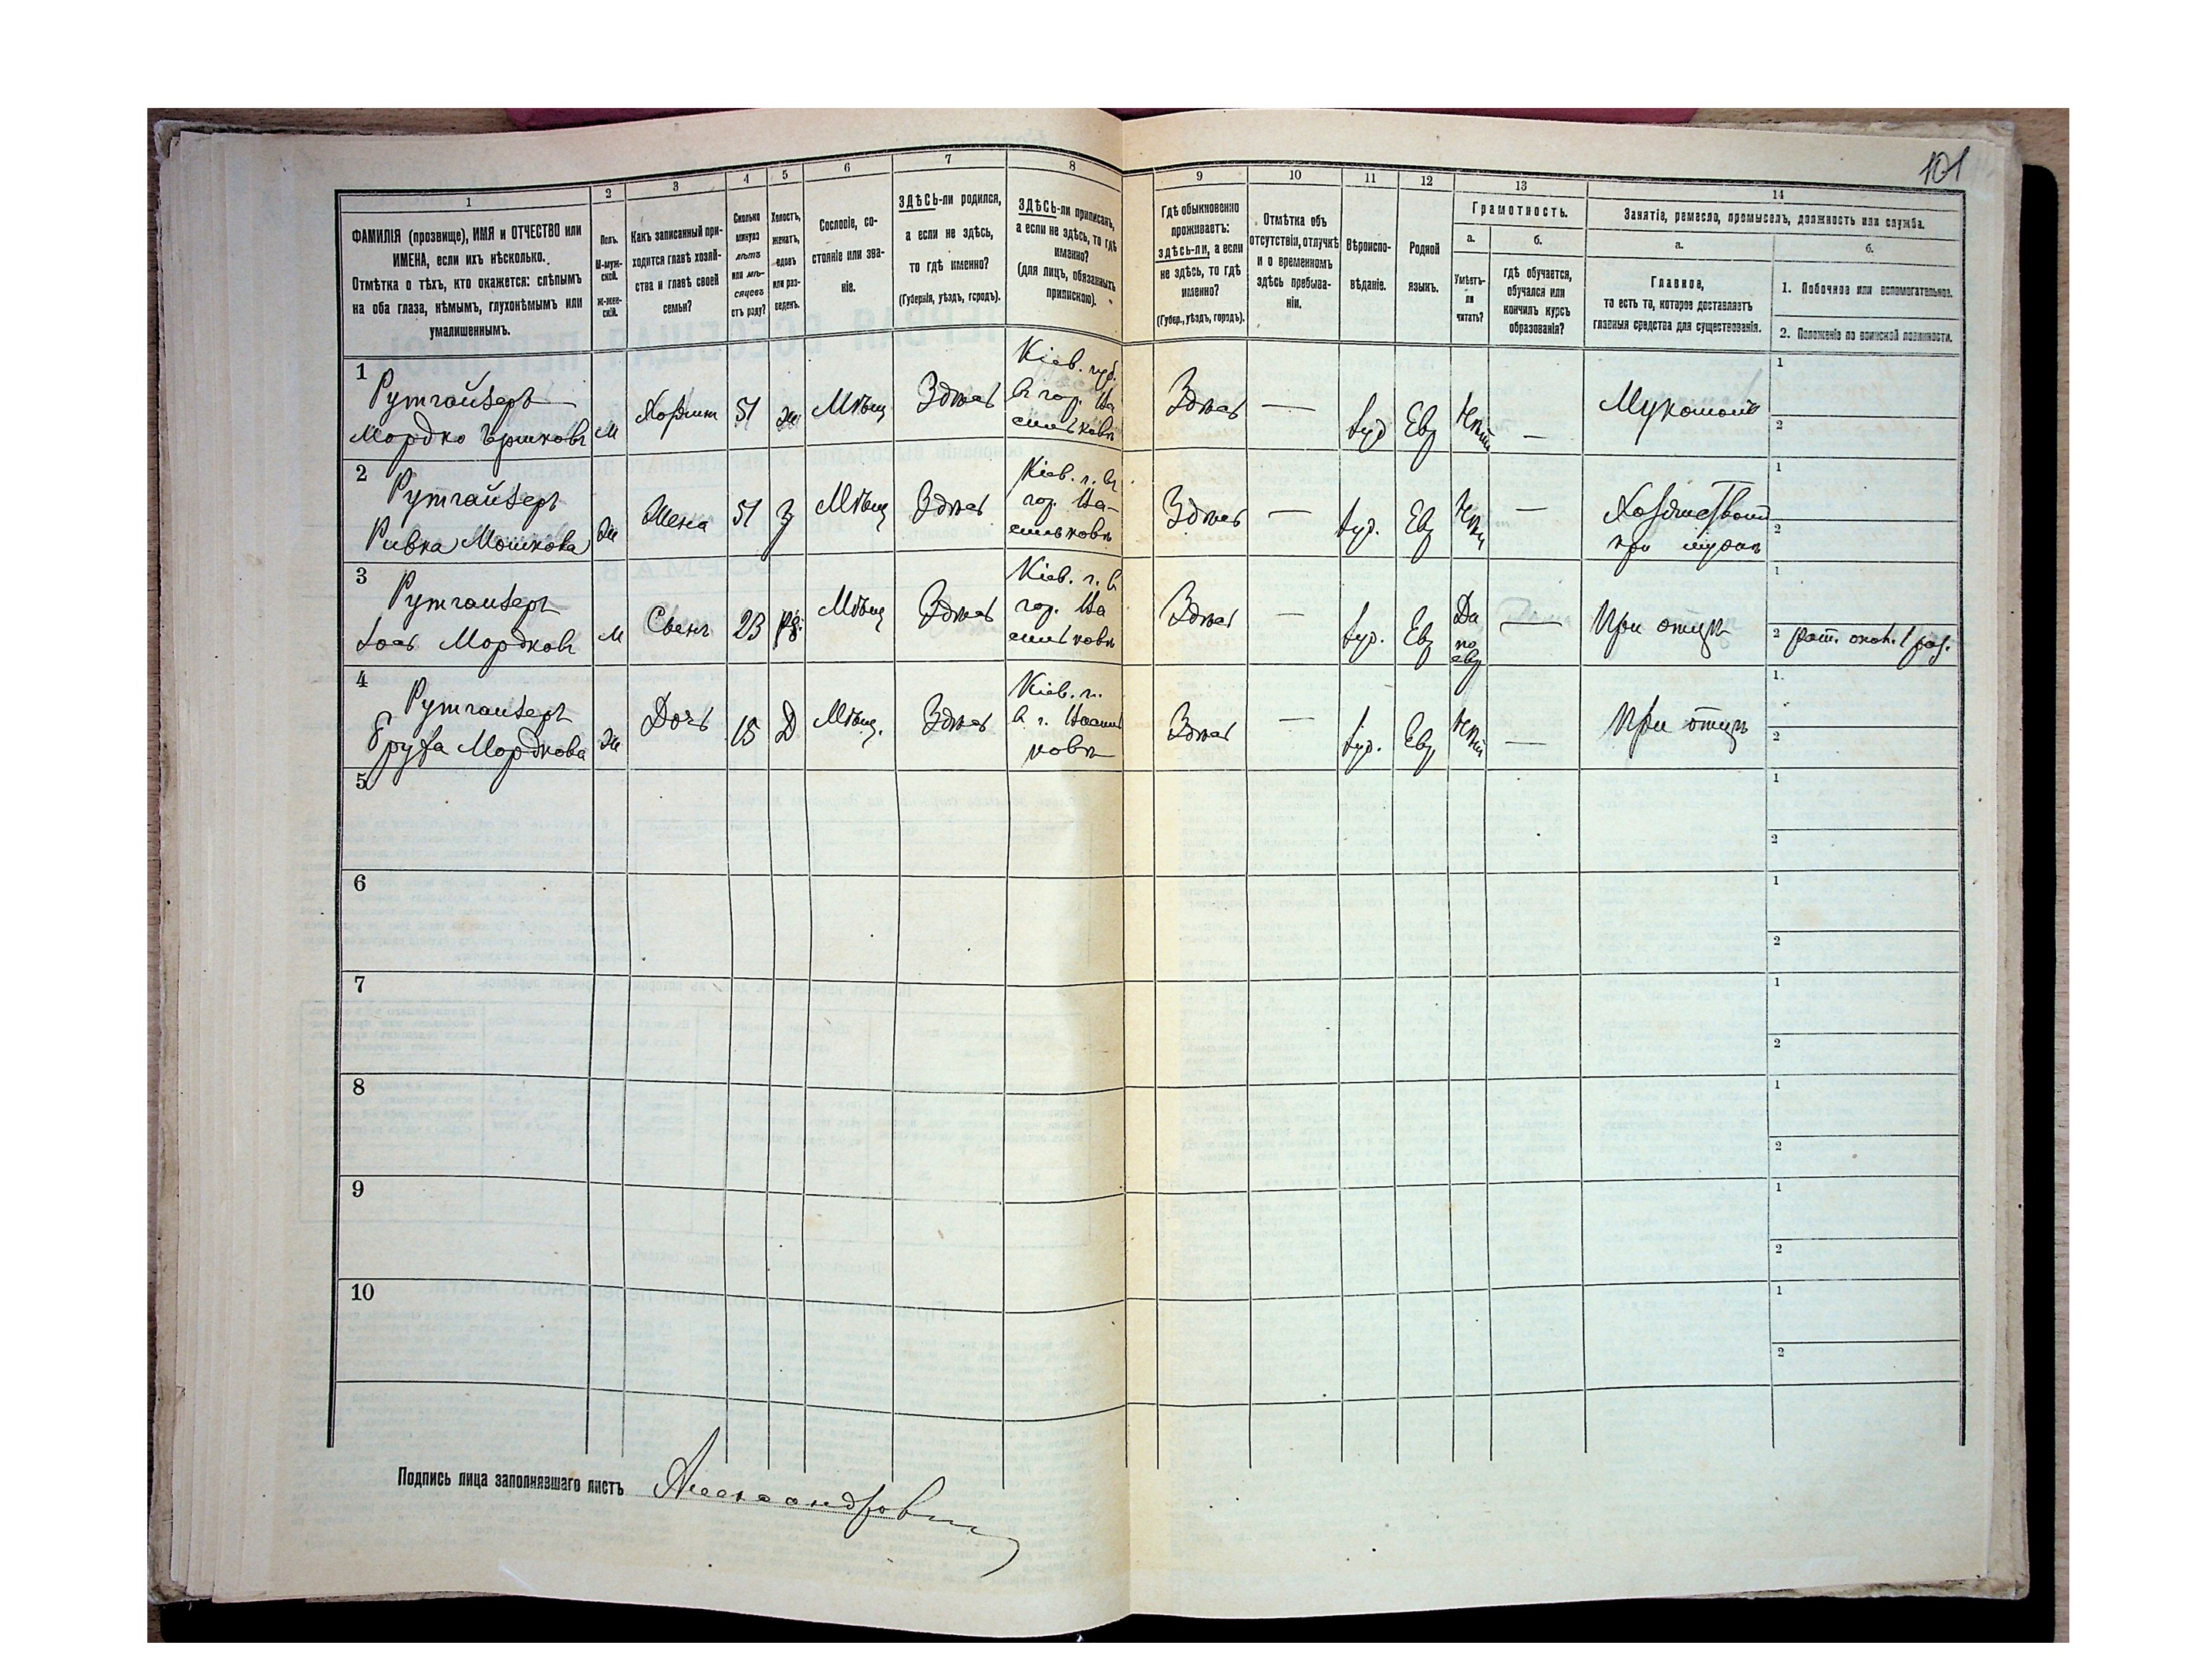 101
1
2
3
4
5
6
7
8
9
10
11
12
13
14
ФАМИЛІЯ (прозвище), ИМЯ и ОТЧЕСТВО или
ИМЕНА, если ихъ нѣсколько.
Отмѣтка о тѣхъ, кто окажется: слѣпымъ
на оба глаза, нѣмымъ, глухонѣмымъ или
умалишеннымъ.
Полъ.
М-муж-
ской.
Ж-жен-
скій.
Какъ записанный при-
ходится главѣ хозяй-
ства и главѣ своей
семьи?
Сколько
минуло
лѣтъ
или мѣ-
сяцевъ
отъ роду?
Холостъ,
женатъ,
вдовъ
или раз-
веденъ.
Сословіе, со-
стояніе или зва-
ніе.
ЗДѢСЬ-ли родился,
а если не здѣсь,
то гдѣ именно?
(Губернія, уѣздъ, городъ).
ЗДѢСЬ-ли приписанъ,
а если не здѣсь, то гдѣ
именно?
(для лицъ, обязанныхъ
припискою).
Гдѣ обыкновенно
проживаетъ:
здѣсь-ли, а если
не здѣсь, то гдѣ
именно?
(Губер., уѣздъ, городъ).
Отмѣтка объ
отсутствіи, отлучкѣ
и о временномъ
здѣсь пребыва-
ніи.
Вѣроиспо-
вѣданіе.
Родной
языкъ.
Грамотность.
а.
Умѣетъ-
ли
читать?
б.
гдѣ обучается,
обучался или
кончилъ курсъ
образованія?
Занятіе, ремесло, промыселъ, должность или служба.
а.
Главное,
то есть то, которое доставляетъ
главныя средства для существованія.
б.
1. Побочное или вспомогательное.
2. Положеніе по воинской повинности.
1
Рутгайзеръ
Мордко Ършковъ
М
Хозяинъ
51
ж
Мѣщ
Здѣсь
Кіев. губ.
въ гор. Ва
сильковѣ
Здѣсь
—
Іуд
Евр
Нѣтъ
—
Мукомолъ
1
2
2
Рутгайзеръ
Ривка Мошкова
Ж
Жена
51
З
Мѣщ
Здѣсь
Кіев. г. въ
гор. Ва-
сильковѣ
Здѣсь
—
Іуд.
Евр
Нѣтъ
—
при мужѣ
1
2
3
Рутгайзеръ
Мордковъ
М
Сынъ
23
Мѣщ
Здѣсь
Кіев. г. въ
гор. Ва
сильковѣ
Здѣсь
—
Іуд.
Евр
Да
по
евр
—
При отцѣ
1
2 рат. опол. 1 раз.
4
Рутгайзеръ
Мордкова
Ж
Дочь
15
Д
Мѣщ.
Здѣсь
Кіев. г.
въ г. Василь
ковѣ
Здѣсь
—
Іуд.
Евр
Нѣтъ
—
При отцѣ
1.
2
5
1
2
6
1
2
7
1
2
8
1
2
9
1
2
10
1
2
Подпись лица заполнявшаго листъ